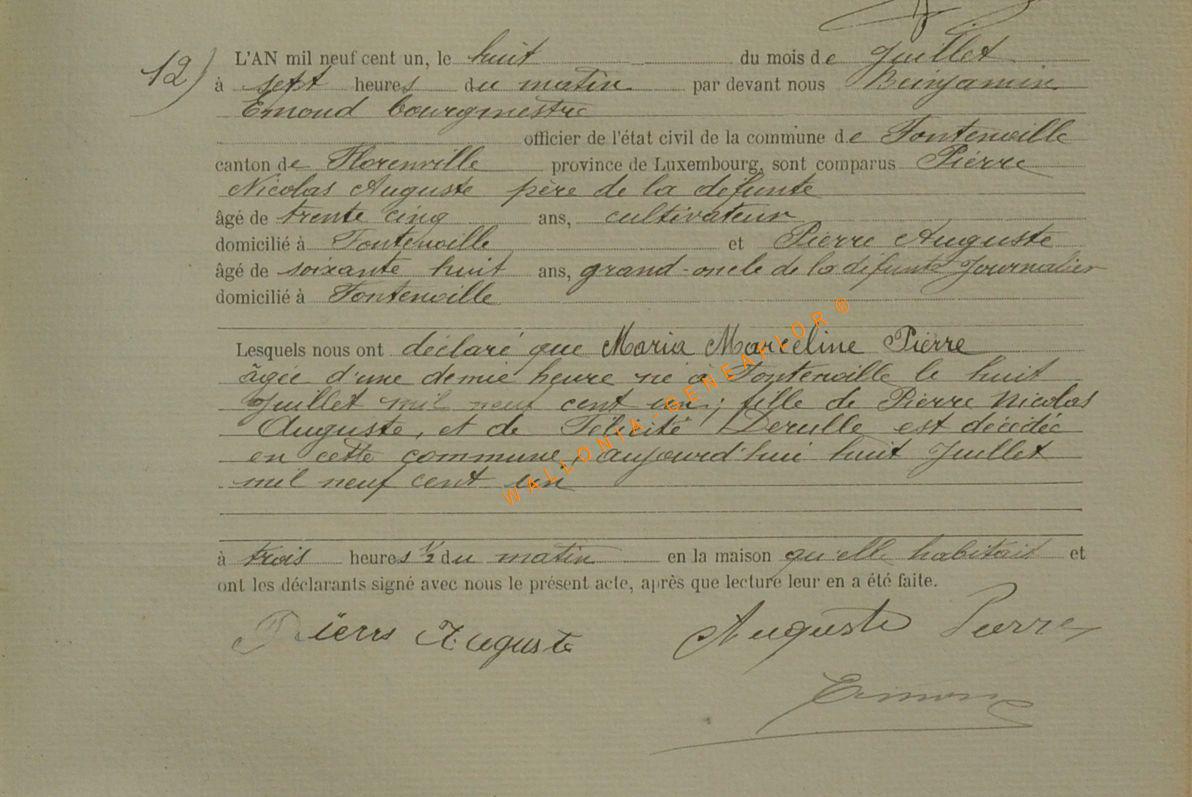 12) L'AN mil neuf cent un, le huit du mois de Juillet
à sept heures du matin par devant nous Benjamin
Emond bourgmestre
officier de l'état civil de la commune de Fontenoille
canton de Florenville province de Luxembourg, sont comparus Pierre
Nicolas Auguste père de la défunte
âgé de trente cinq ans, cultivateur
domicilié à Fontenoille et Pierre Auguste
âgé de soixante huit ans, grand-oncle de la défunte Journalier
domicilié à Fontenoille
Lesquels nous ont déclaré que Maria Marceline Pierre
âgée d'une demie heure né à Fontenoille le huit
Juillet mil neuf cent un; fille de Pierre Nicolas
Auguste, et de Félicité Derulle est décédée
en cette commune, aujourd'hui huit Juillet
mil neuf cent un
à trois heures ½ du matin en la maison qu'elle habitait et
ont les déclarants signé avec nous le présent acte, après que lecture leur en a été faite.
Pierre Auguste Auguste Pierre
Emond
WALLONIA-GENEAFLOR ©